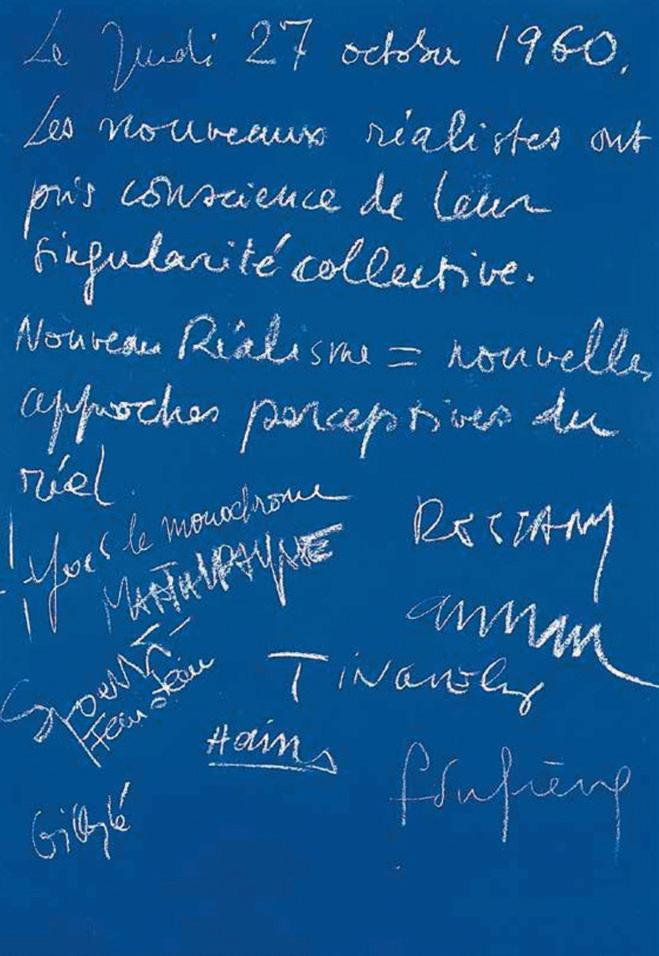 Le Jeudi 27 octobre 1960.
Les nouveaux réalistes ont
pris conscience de leur
singularité collective.
Nouveau Réalisme = nouvelles
approches perceptives du
réel.
Yves le monochrome
RESTANY
MARTIAL RAYSSE
arman
Spoerri
Jean
TINGUELY
Hains
Dufrêne
Villeglé